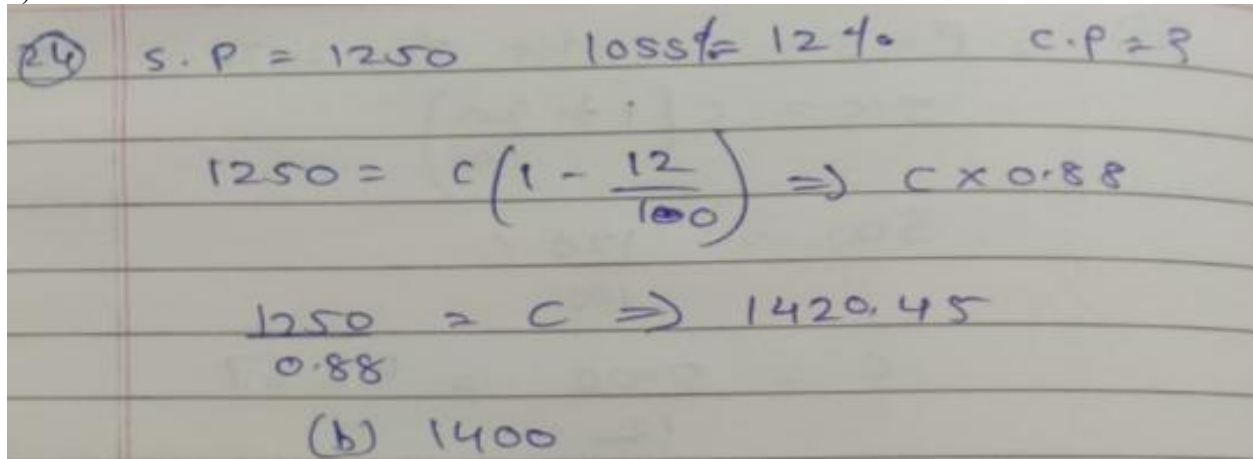 24 S.P = 1250 loss% = 12% C.P = ?
1250 = C(1 - 12/100) => C x 0.88
1250/0.88 = C => 1420.45
(b) 1400